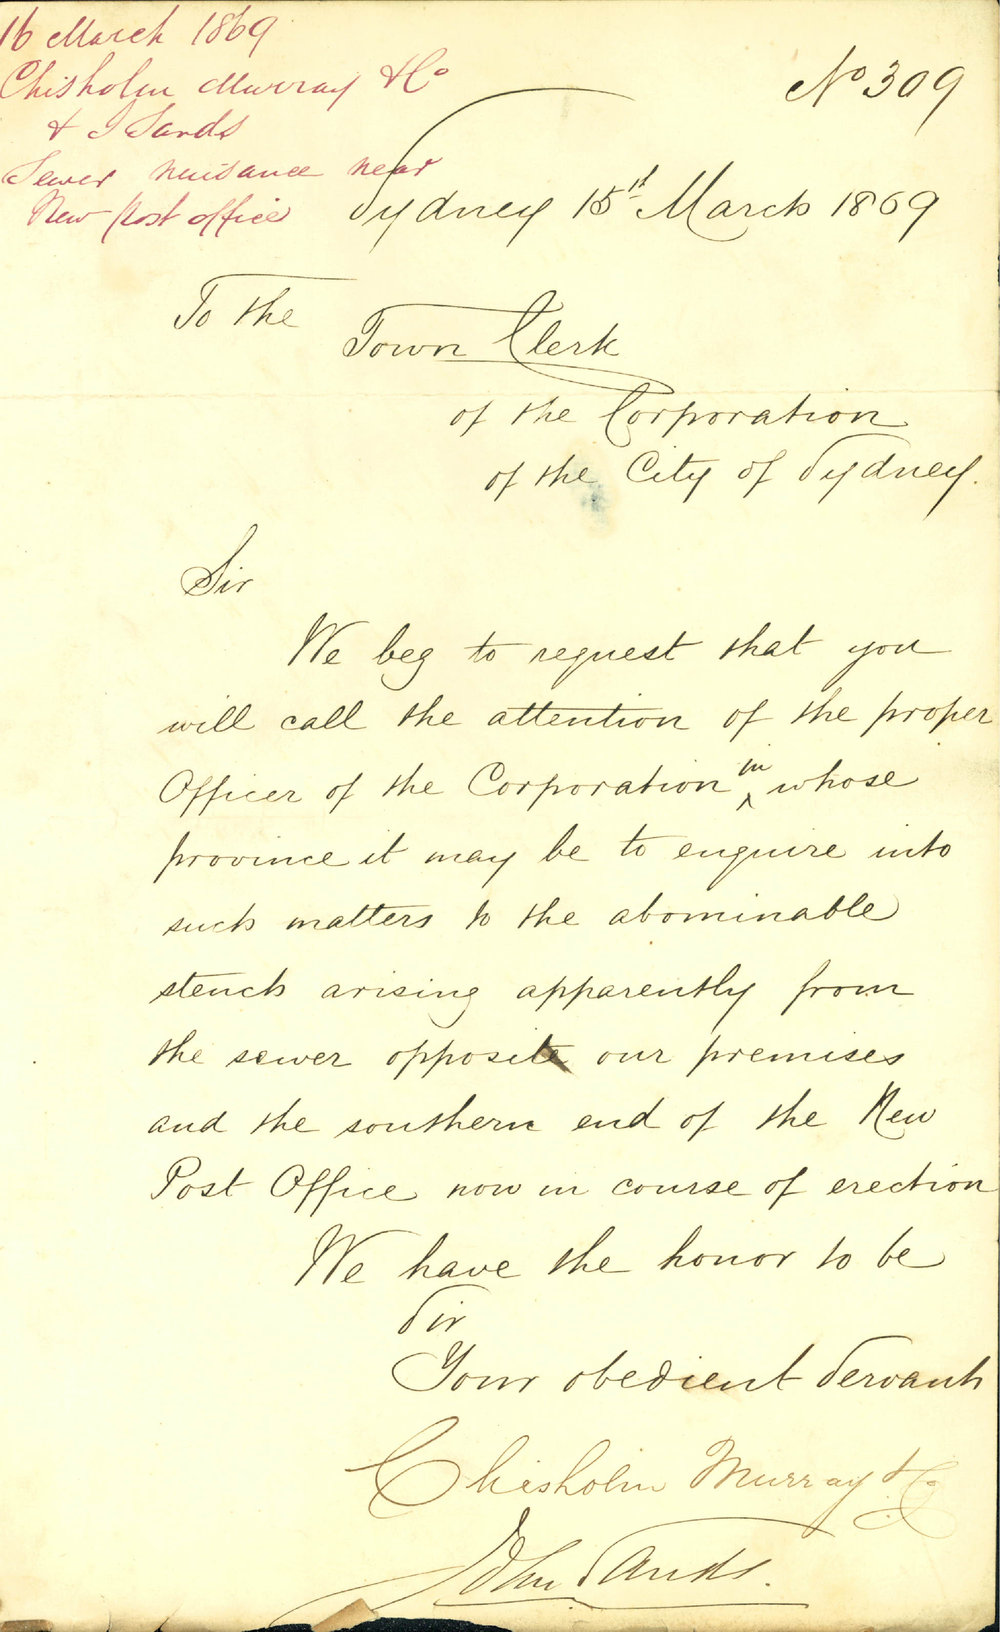 16 March 1869
Chisholm Murray & Co
& J Sands
Sewer nuisance near
New Post office
No 309
Sydney 15th March 1869
To the
Town Clerk
of the Corporation
of the City of Sydney.
Sir
We beg to request that you
will call the attention of the proper
Officer of the Corporation in whose
province it may be to enquire into
such matters to the abominable
stench arising apparently from
the sewer opposite our premises
and the southern end of the New
Post Office now in course of erection
We have the honor to be
Sir
Your obedient Servants
Chisholm Murray & Co
John Sands.